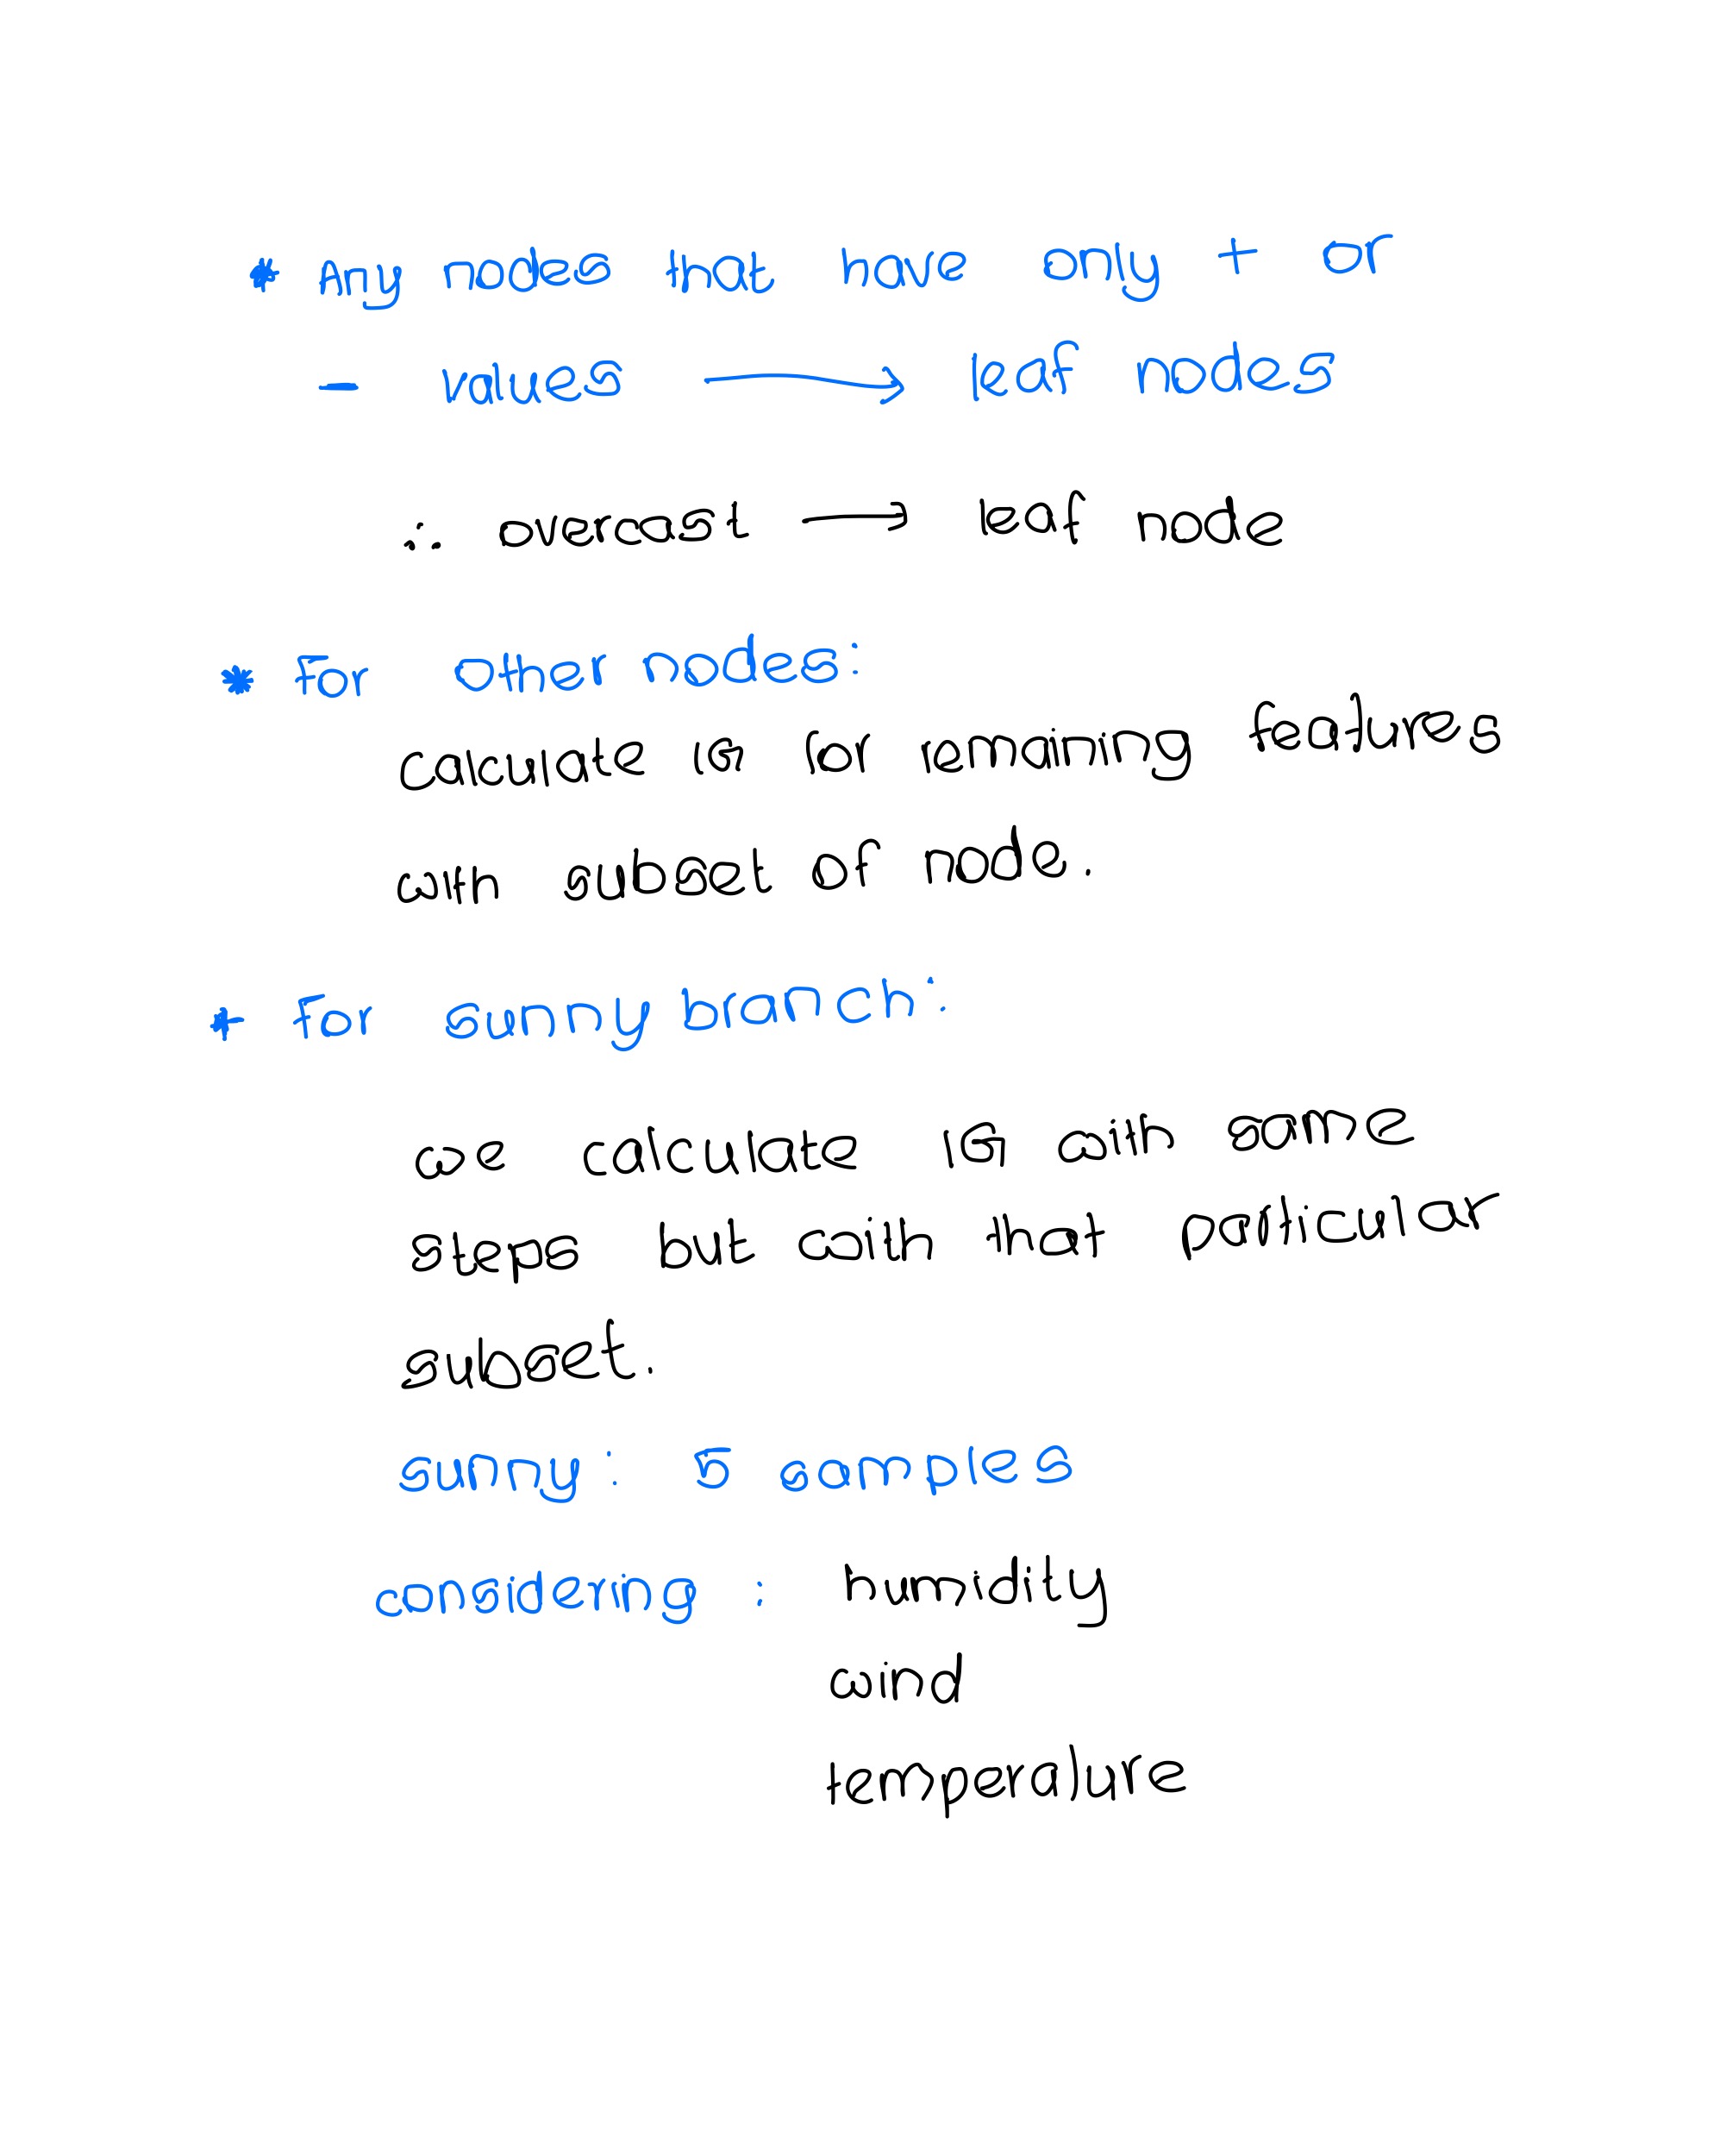 * Any nodes that have only + or
- values → leaf nodes
∴ overcast → leaf node
* For other nodes:
calculate IG for remaining features
with subset of node.
* For sunny branch:
we calculate IG with same
steps but with that particular
subset.
sunny: 5 samples
considering : humidity
wind
temperature